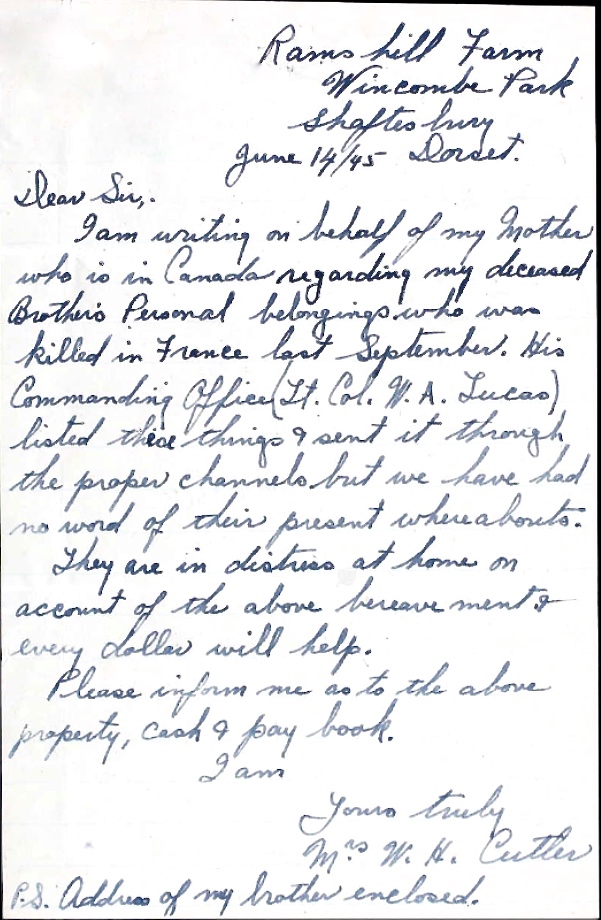 Rams hill Farm
Wincombe Park
Shaftesbury
June 14/45 Dorset.
Dear Sir,.
I am writing on behalf of my Mother
who is in Canada regarding my deceased
Brother's Personal belongings who was
killed in France last September. His
Commanding Office (Lt. Col. W. A. Lucas)
listed these things & sent it through
the proper channels but we have had
no word of their present whereabouts.
They are in distress at home on
account of the above bereavement &
every dollar will help.
Please inform me as to the above
property, cash & pay book.
I am
Yours truly
Mrs W. H. Cutler
P.S. Address of my brother enclosed.